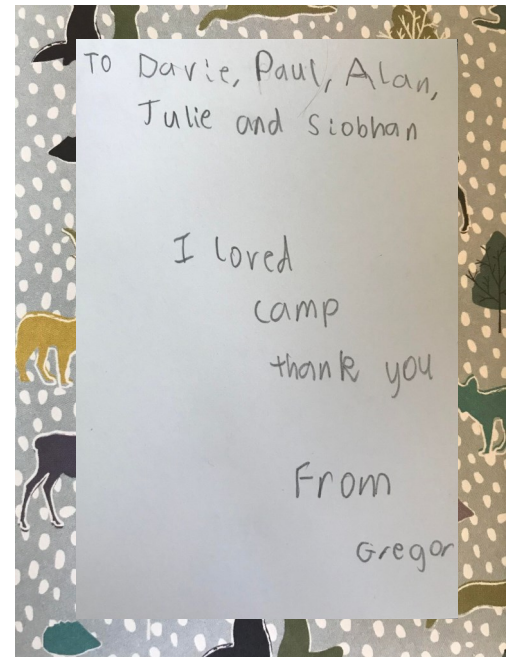 To Davie, Paul, Alan,
Julie and Siobhan
I loved
camp
thank you
From
Gregor